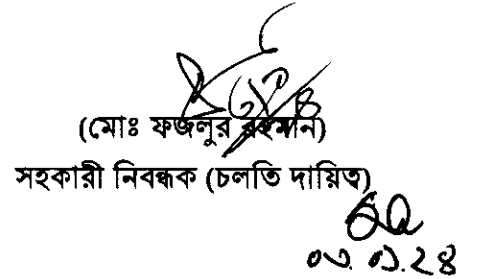 (মোঃ ফজলুর রহমান)
সহকারী নিবন্ধক (চলতি দায়িত্ব)